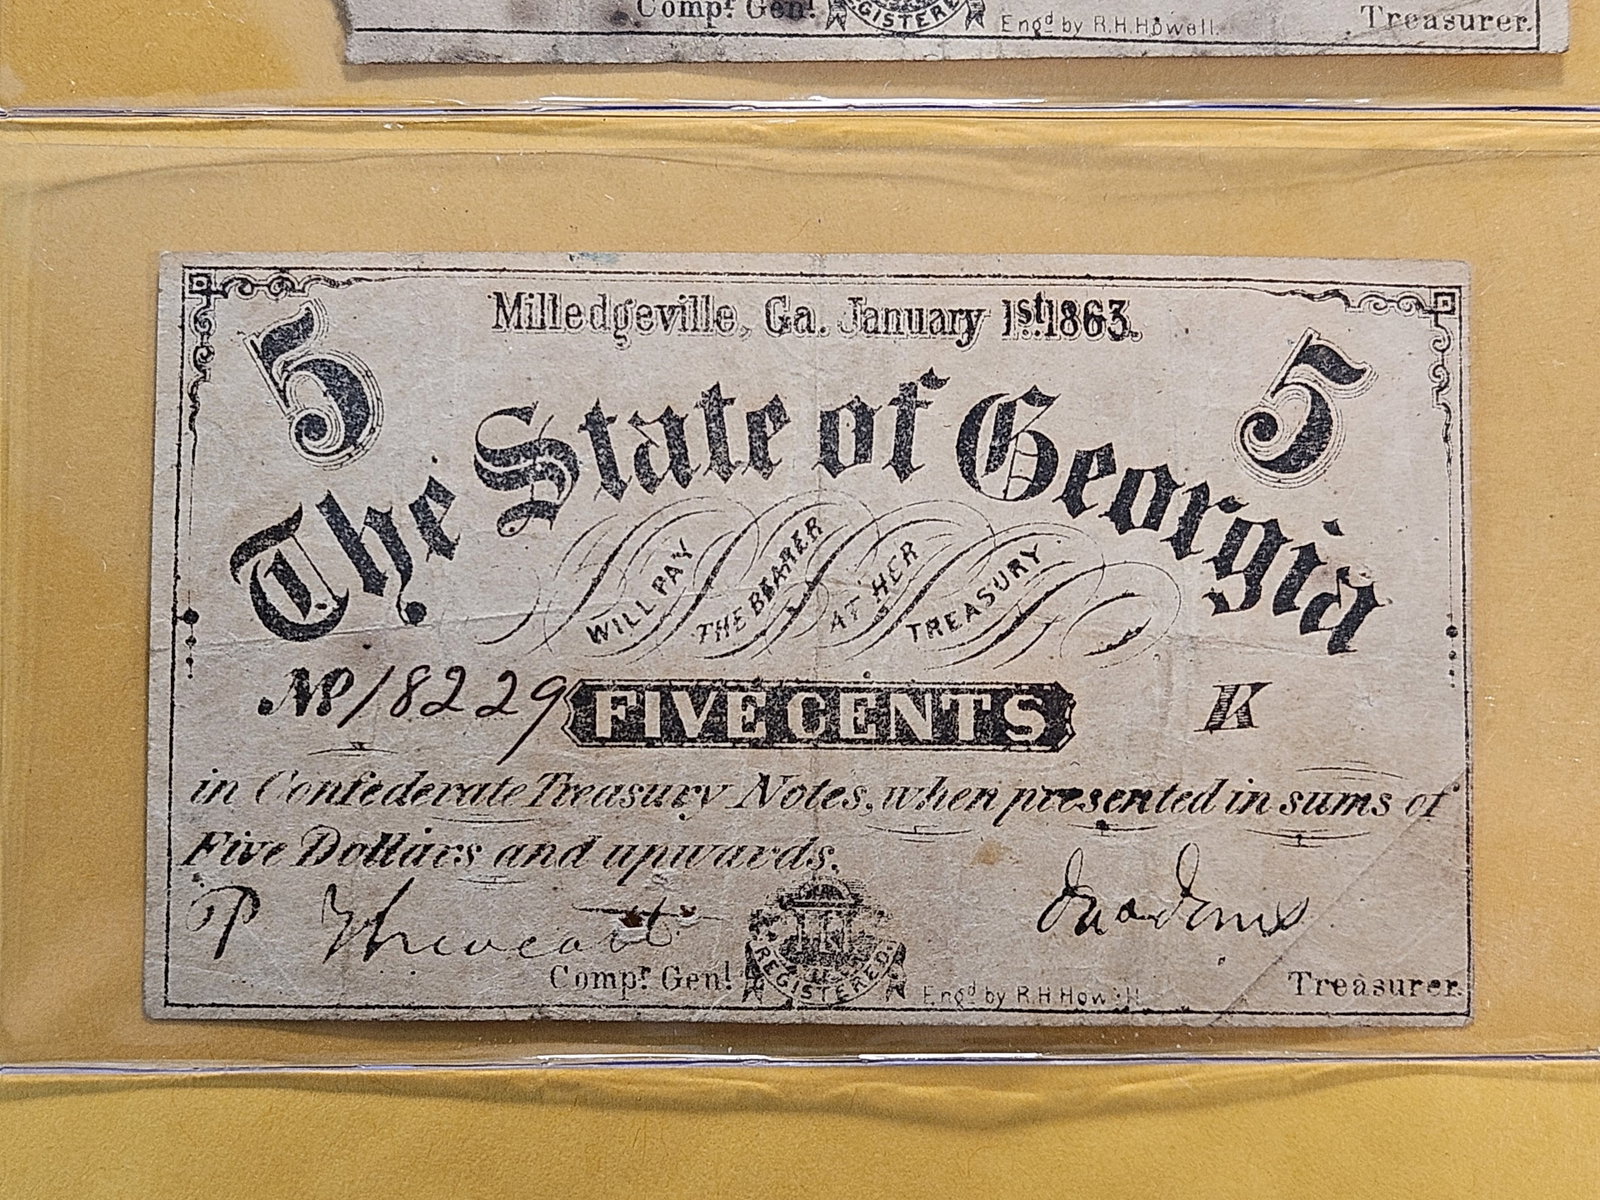 Compr. Genl.
REGISTERED
Engd by R.H.Howell.
Treasurer.
Milledgeville, Ga. January 1st. 1863.
5
5
The State of Georgia
WILL PAY
THE BEARER
AT HER
TREASURY
No 18229
FIVE CENTS
K
in Confederate Treasury Notes, when presented in sums of
Five Dollars and upwards.
P
Compr. Genl.
REGISTERED.
Engd by R.H.Howell.
Treasurer.